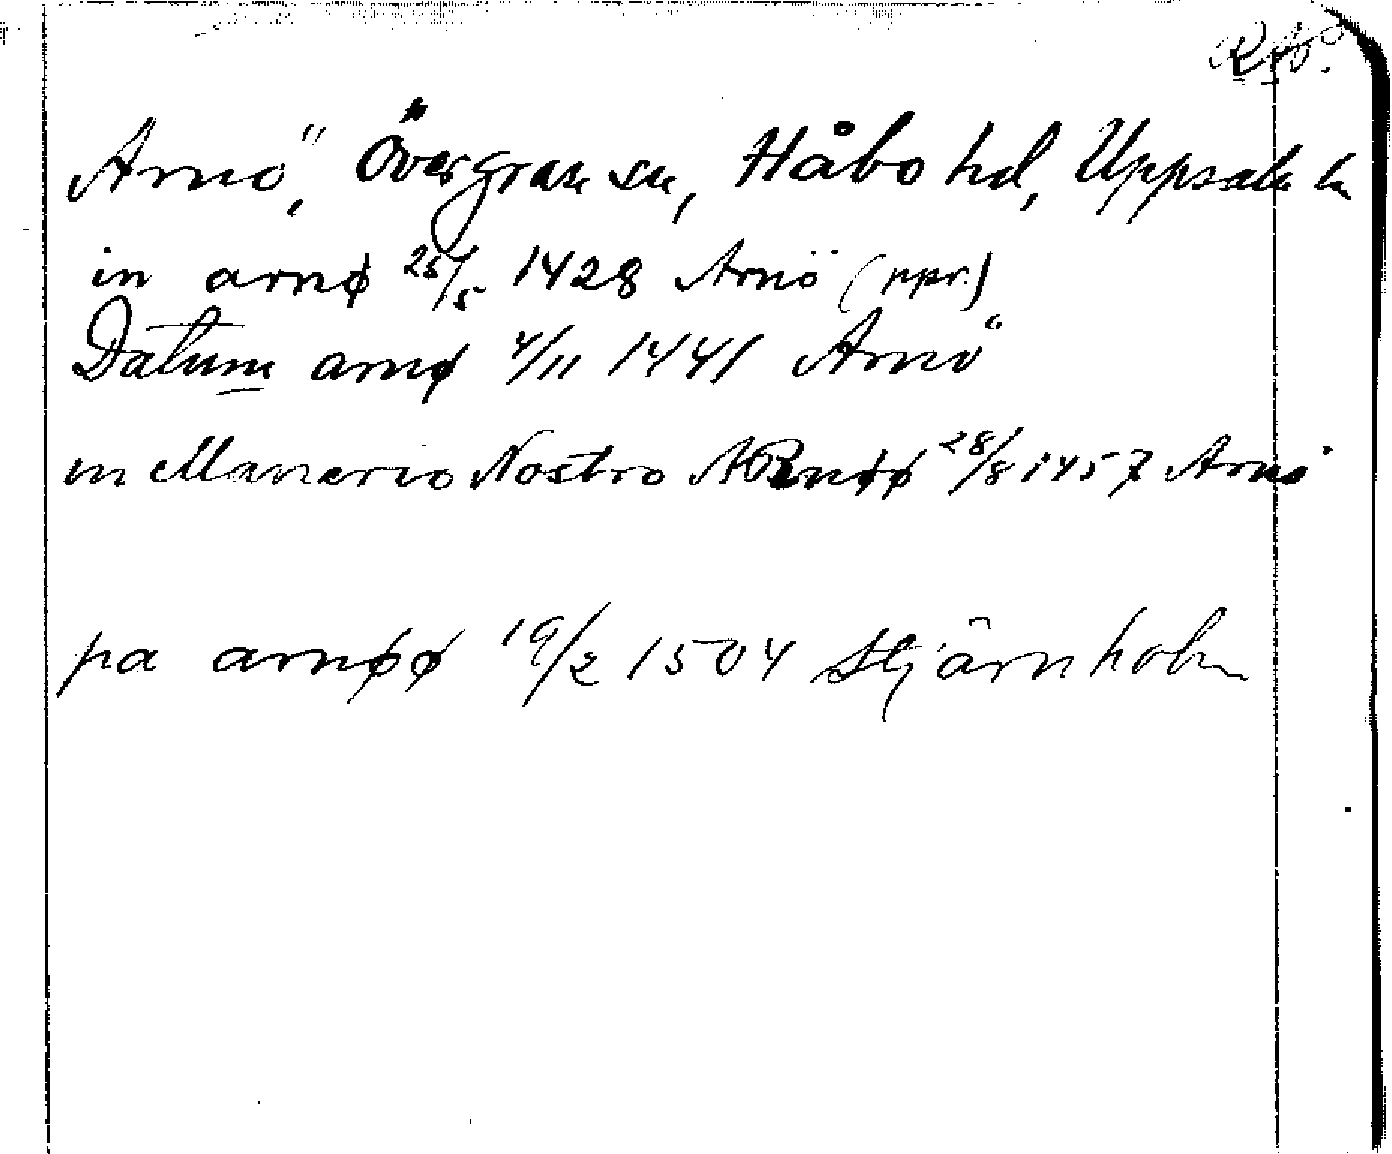 RAp.
Arnö, Övergrans sn, Håbo hd, Uppsala ln
in arnø 25/5 1428 Arnö (ppr.)
Datum arnø 4/11 1441 Arnö
in Manerio Nostro ARnøø 28/8 1457 Arnö
pa arnøø 19/2 1504 Stjärnholm